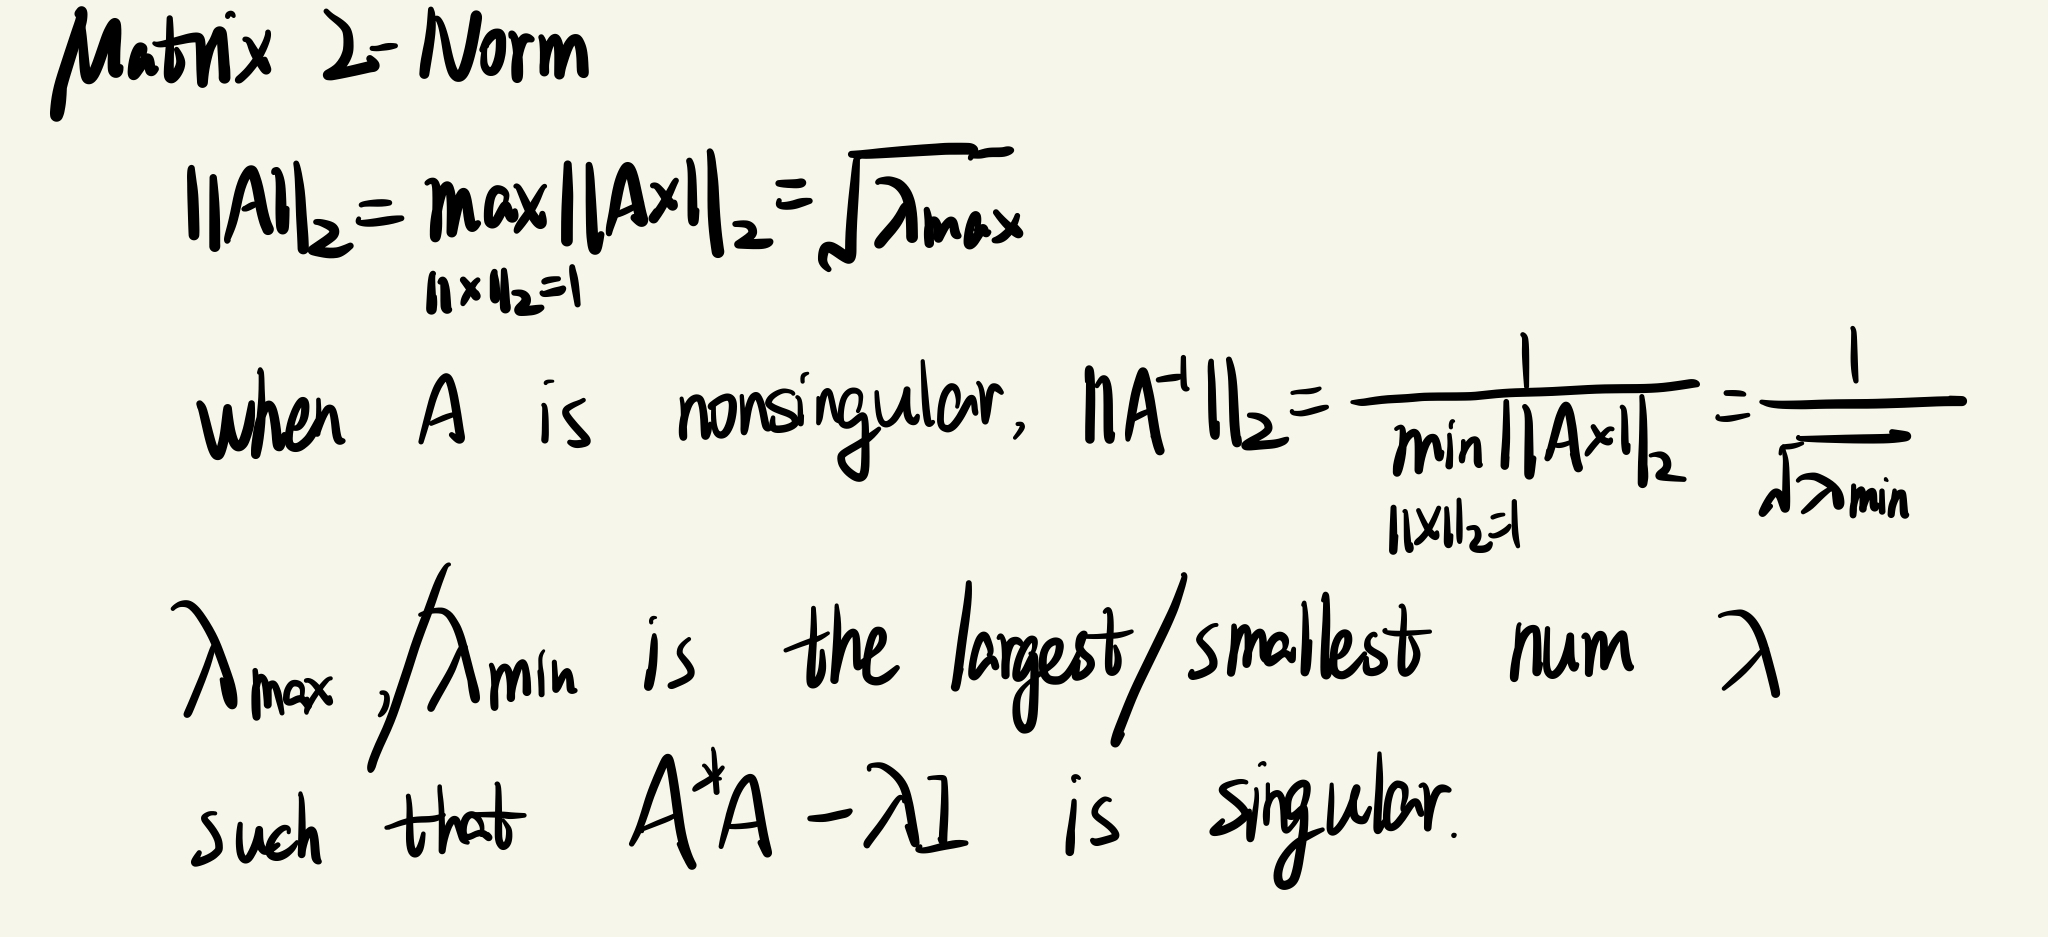 Matrix 2-Norm
||A||₂ = max ||Ax||₂ = √λmax
||x||₂=1
when A is nonsingular, ||A⁻¹||₂ = 1 / min ||Ax||₂ = 1 / √λmin
||x||₂=1
λmax,/λmin is the largest/smallest num λ
such that A*A - λI is singular.